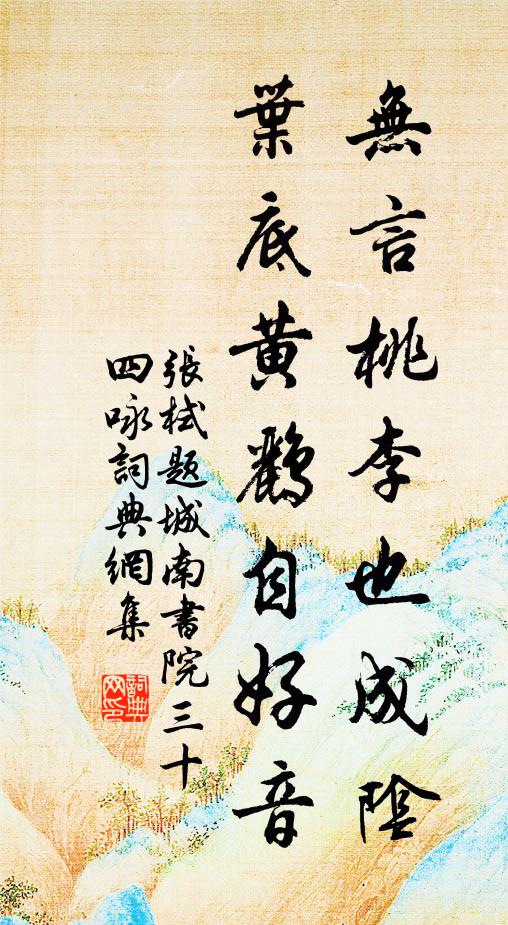 無言桃李也成陰
葉底黃鸝自好音
張栻題城南書院三十
四咏詞典網集
詞典
网印